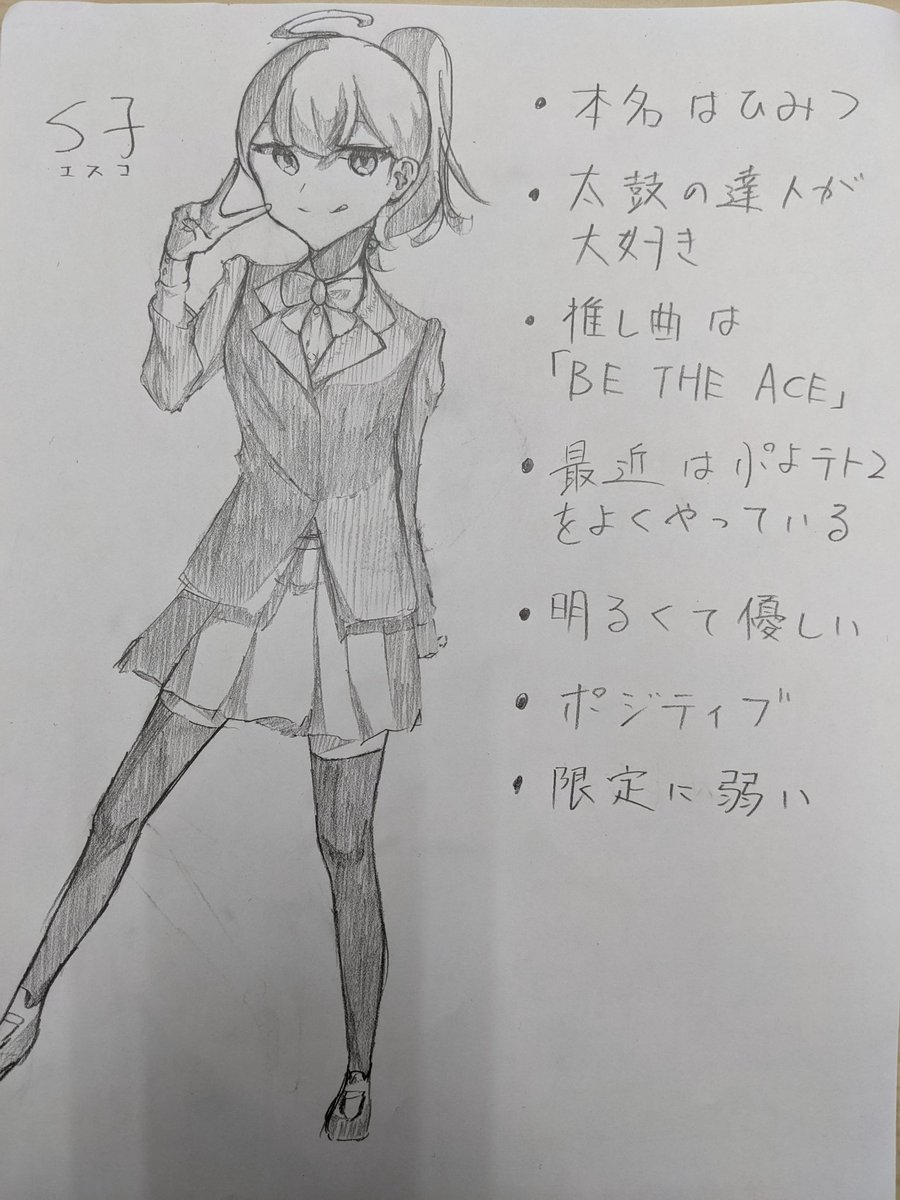 S子
エスコ
・本名はひみつ
・太鼓の達人が
大好き
・推し曲は
「BE THE ACE」
・最近はぷよテト2
をよくやっている
・明るくて優しい
・ポジティブ
・限定に弱い